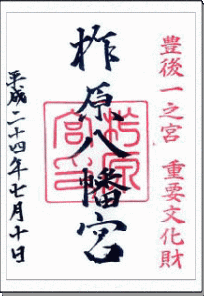 豊後一之宮 重要文化財
柞原八幡宮
平成二十四年七月十日